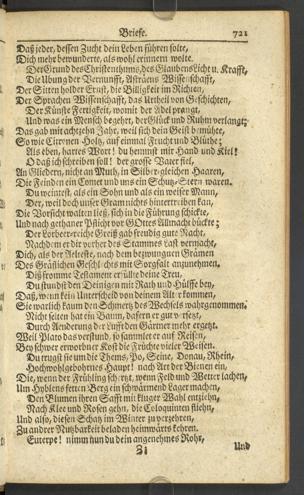 Briefe. 721
Daß jeder, dessen Zucht dein Leben führen solte,
Dich mehr bewunderte, als wohl erinnern wolte.
Der Grund des Christenthums, des Glaubens Licht u. Krafft,
Die Übung der Vernunfft, Asträens Wissenschafft,
Der Sitten holder Ernst, die Billigkeit im Richten,
Der Sprachen Wissenschafft, das Urtheil von Geschichten,
Der Künste Fertigkeit, womit der Adel prangt,
Und was ein Mensch begehrt, der Glück und Ruhm verlangt;
Das gab mit achtzehn Jahr, weil sich dein Geist bemühte,
So wie Citronen-Holz, auf einmal Frucht und Blüthe;
Als eben, hartes Wort! du hemmst mir Hand und Kiel!
O daß ich schreiben soll! der grosse Vater fiel,
An Gliedern, nicht an Muth, in Silber-gleichen Haaren,
Die Feinden ein Comet und uns ein Schutz-Stern waren.
Du weintest, als ein Sohn und als ein weiser Mann,
Der, weil doch unser Gram nichts hintertreiben kan,
Die Vorsicht walten ließ, sich in die Führung schickte,
Und nach gethaner Pflicht vor GOttes Allmacht bückte;
Der Lorbeer-reiche Greiß gab freudig gute Nacht,
Nachdem er dir vorher des Stammes Last vermacht,
Dich, als der Aelteste, nach dem bezwungnen Grämen
Des Gräflichen Geschlechts mit Sorgfalt anzunehmen.
Diß fromme Testament erfüllte deine Treu,
Du stundst den Deinigen mit Rath und Hülffe bey,
Daß, wenn kein Unterscheid von deinem Alter kommen,
Sie wärlich kaum den Schmertz des Wechsels wahrgenommen.
Nicht selten hat ein Baum, da fern er gut versetzt,
Durch Aenderung der Lufft den Gärtner mehr ergetzt.
Weil Plato das verstund, so sammlet er auf Reisen,
Bey schwer erworbner Kost die Früchte vieler Weisen.
Du trugst sie um die Thems, Po, Seine, Donau, Rhein,
Hochwohlgebohrnes Haupt! nach Art der Bienen ein,
Die, wenn der Frühling schertzt, wenn Feld und Wetter lachen,
Um Hyblens fetten Berg ein schwärmend Lager machen,
Den Blumen ihren Safft mit kluger Wahl entziehn,
Nach Klee und Rosen gehn, die Coloquinten fliehn,
Und also, diesen Schatz im Winter zu verzehren,
Zu andrer Nutzbarkeit beladen heimwärts kehren.
Euterpe! nimm nun du dein angenehmes Rohr,
Zz Und